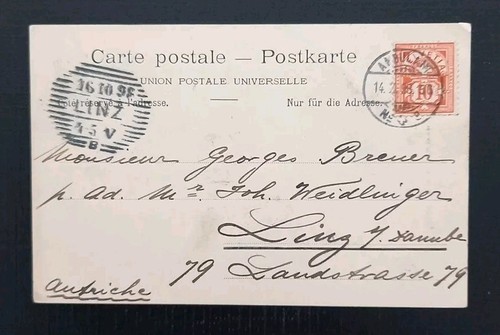 Carte postale — Postkarte
UNION POSTALE UNIVERSELLE
Côté réservé à l'adresse.
Nur für die Adresse.
16 10 98
LINZ
4-5 V
8
AMBULANT
10
Monsieur Georges Breuer
p. ad. Mr. Joh. Weidlinger
Linz a/Danube
79 Landstrasse 79
Autriche